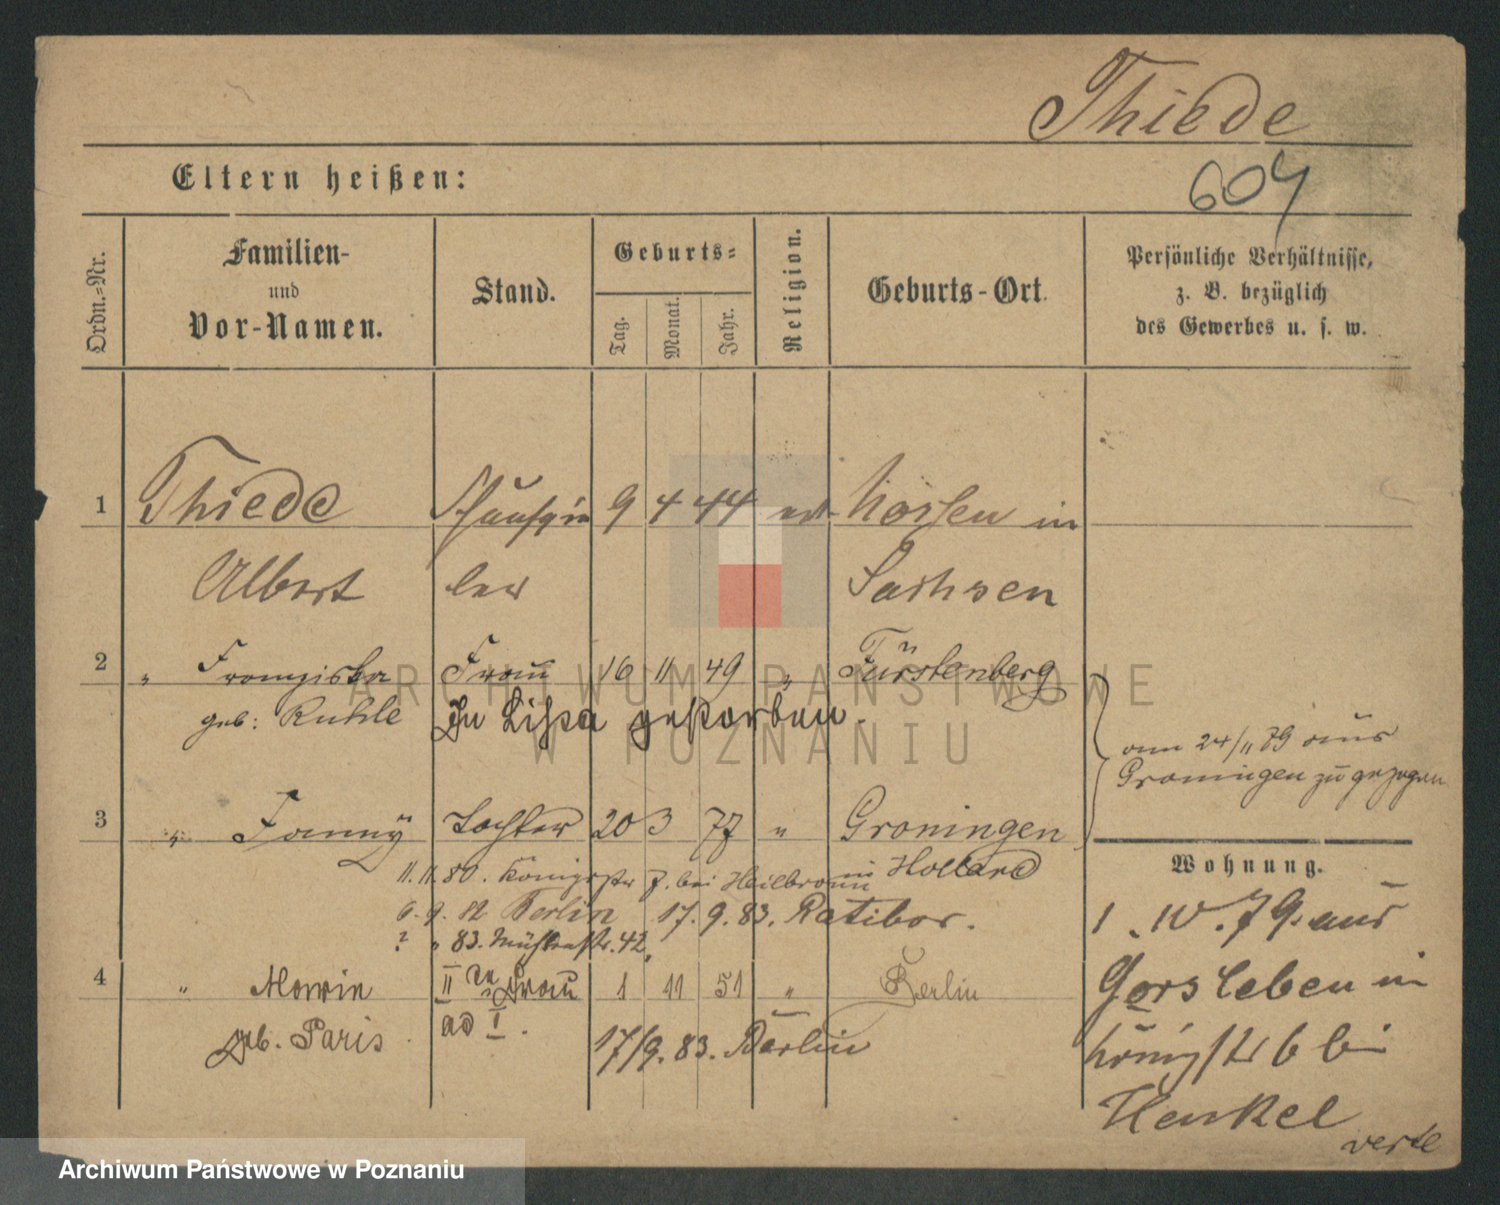 Thiede
604
Eltern heißen:
Ordn.-Nr.
Familien-
und
Vor-Namen.
Stand.
Geburts-
Tag.
Monat.
Jahr.
Religion.
Geburts-Ort.
Persönliche Verhältnisse,
z. B. bezüglich
des Gewerbes u. s. w.
1 Thiede Schauspie 9 4 44 in
Albert ler Sachsen
2 " Franziska Frau 16 11 49 " Fürstenberg
geb: Ruhle In Lissa gestorben.
am 24/11 79 aus
Groningen zugezogen
3 " Fanny Tochter 20 3 77 " Groningen
in Holland
Wohnung.
11.11.80. Königsstr 7. bei Heilbronn
6. 9. 82 Berlin 17. 9. 83. Ratibor.
? " 83. Mühlenstr. 42.
1. 10. 79. aus
Gorsleben in
Königstr 6 bei
Henkel
verte
4 " Frau 1 11 51 " Berlin
geb. Paris ad I.
17/9. 83. Berlin
ARCHIWUM PAŃSTWOWE
W POZNANIU
Archiwum Państwowe w Poznaniu